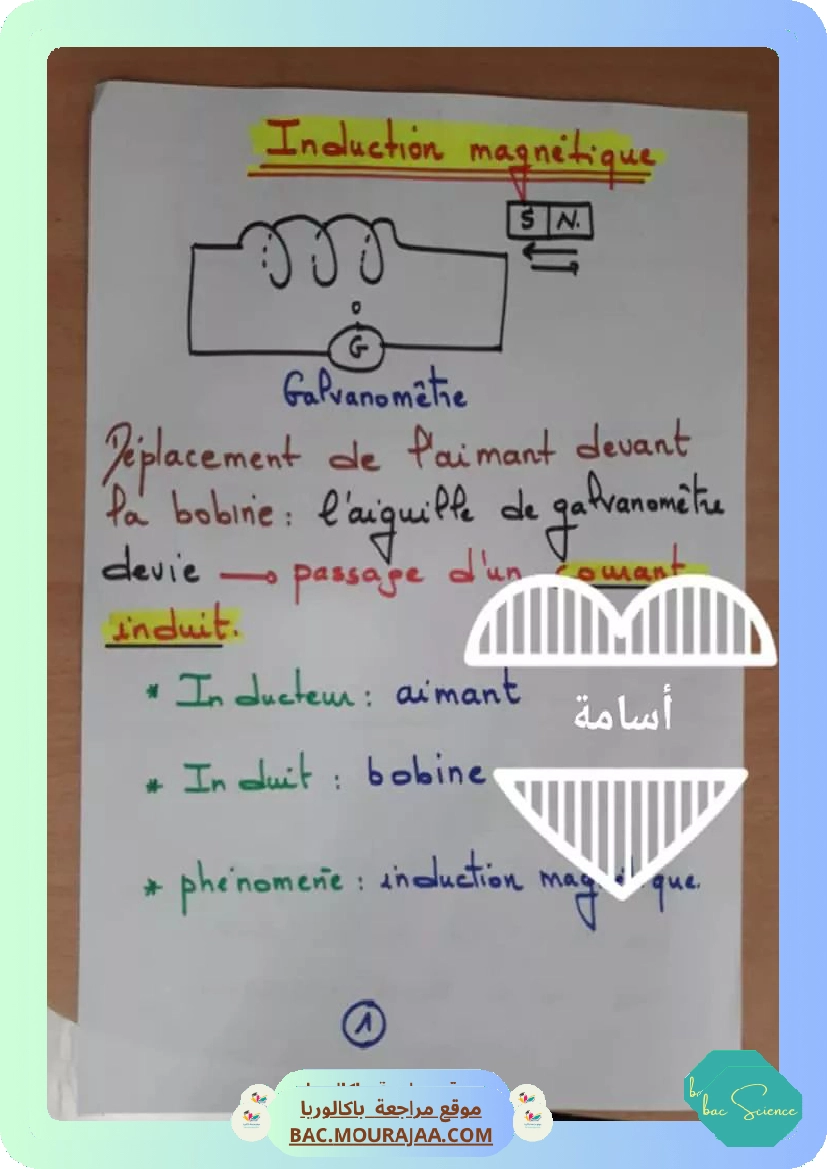 Induction magnétique
S N.
G
Galvanomètre
Déplacement de l'aimant devant
la bobine : l'aiguille de galvanomètre
devie → passage d'un courant
induit.
* Inducteur : aimant
أسامة
* Induit : bobine
* phénomène : induction magnétique.
1
موقع مراجعة باكالوريا
BAC.MOURAJAA.COM
bac Science